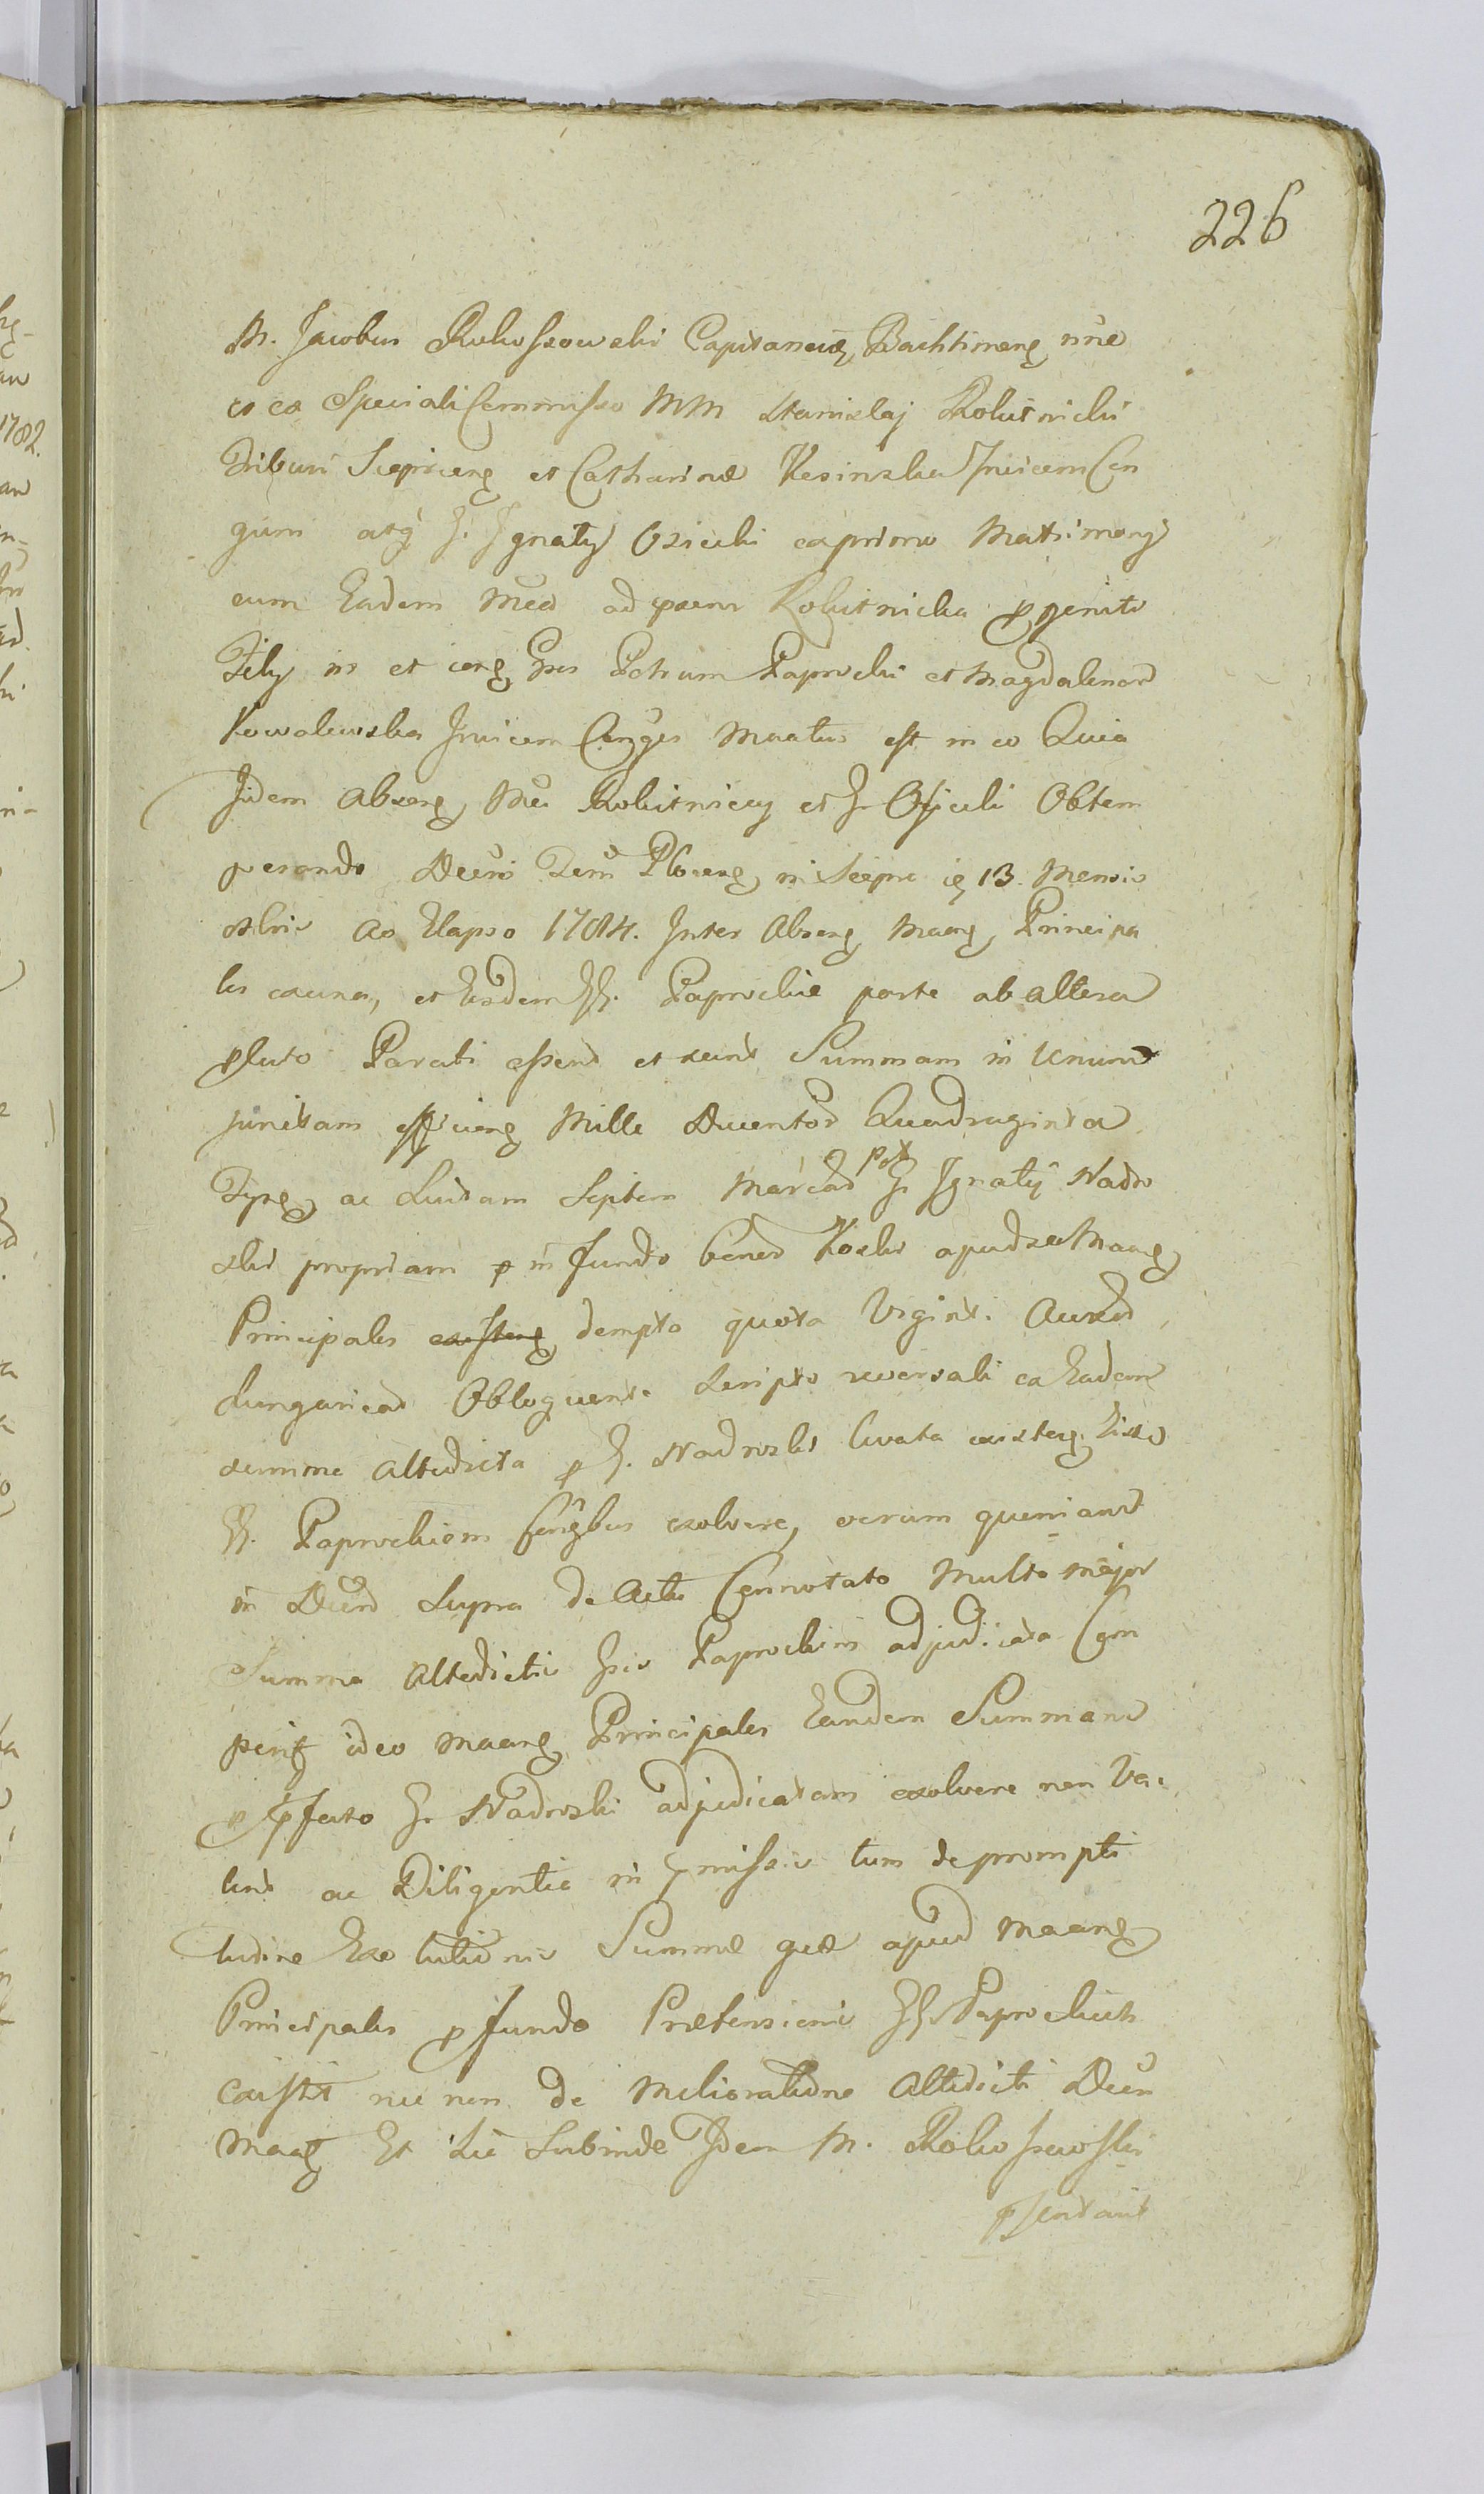 226
M. Jacobus Rokossowski Capitaneus Bachtinens nne
et ex Speciali Commisso MM Stanislaj Rokitnicki
Tribuni Sieprcens et Catharinæ Kesinska Invicem Con
gum atq G. Ignatij Osiecki ex primo Matrimonij
cum Eadem Mca ad psens Rokitnicka pgeniti
Filij in et cong Gsos Petrum Paprocki et Magdalenam
Kowalewska Invicem Conges Maatus est in eo Quia
Iidem absens Mci Rokitniccy et G. Osiecki Obtem
perando Decro Terri Plocens in Sieprc 13. Mensis
Ao Elapso 1784. Inter absens Maans Principa
les ex una, et Eosdem GG. Paprockie parte ab altera
plato Parati essent et sunt Summam in Unum
junctam efficiens Mille Ducentos Quadraginta
Typs ac Luitam Septem Marcas post G. Ignatij Nadro
ski propriam p in fundo bonor Koski apud se Maans
Principales existens dempta quota Viginti Aureor
Hungaricor Obloquente scripto reversali ex Eadem
summa Altedicta p G. Nadroski levata existens Eisd
GG. Paprockiem Congbus exolvere, verum quoniam
in Decro Supra de Actu Connotato Multo major
Summa Altedictis Gsis Paprockim adjudicata Com
perit ideo Maans Principales Eandem Summam
p pfato G. Nadroski adjudicatam exolvere non Va
lent ac Diligentia in pmissis tum de prompti
tudine Exolutionis Summæ quæ apud Maans
Principales p fundo Prætensionis GG. Paprockich
existit nec non de melioratione Altedicti Decri
Maat Et Sic Subinde Idem M. Rokossowski
psentavit